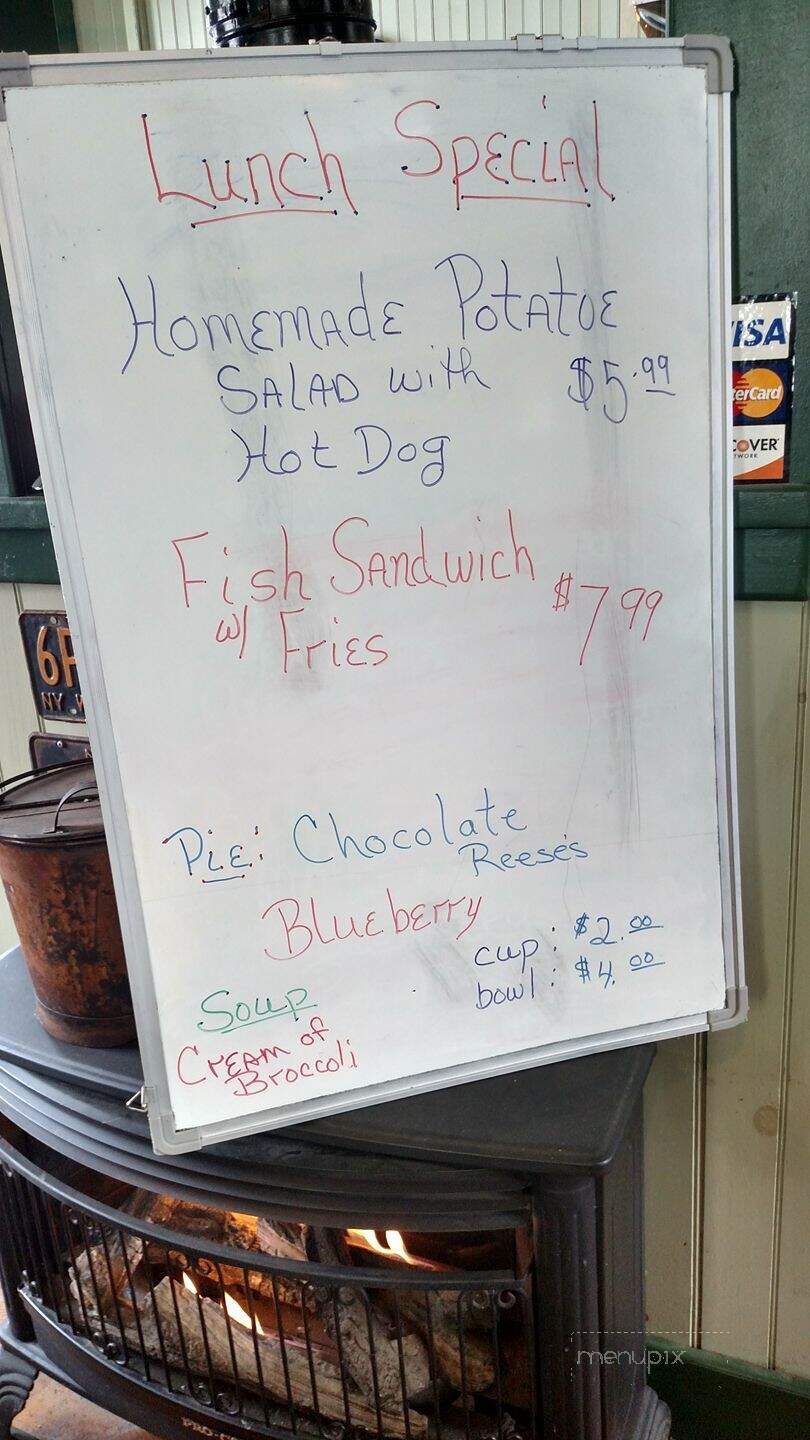 Lunch Special
Homemade Potatoe
Salad with $5.99
Hot Dog
Fish Sandwich
w/ Fries $7 99
Pie: Chocolate
Reese's
Blueberry
cup: $2.00
bowl: $4.00
Soup
Cream of
Broccoli
VISA
terCard
COVER
TWORK
6F
NY
PRO-C
menupix